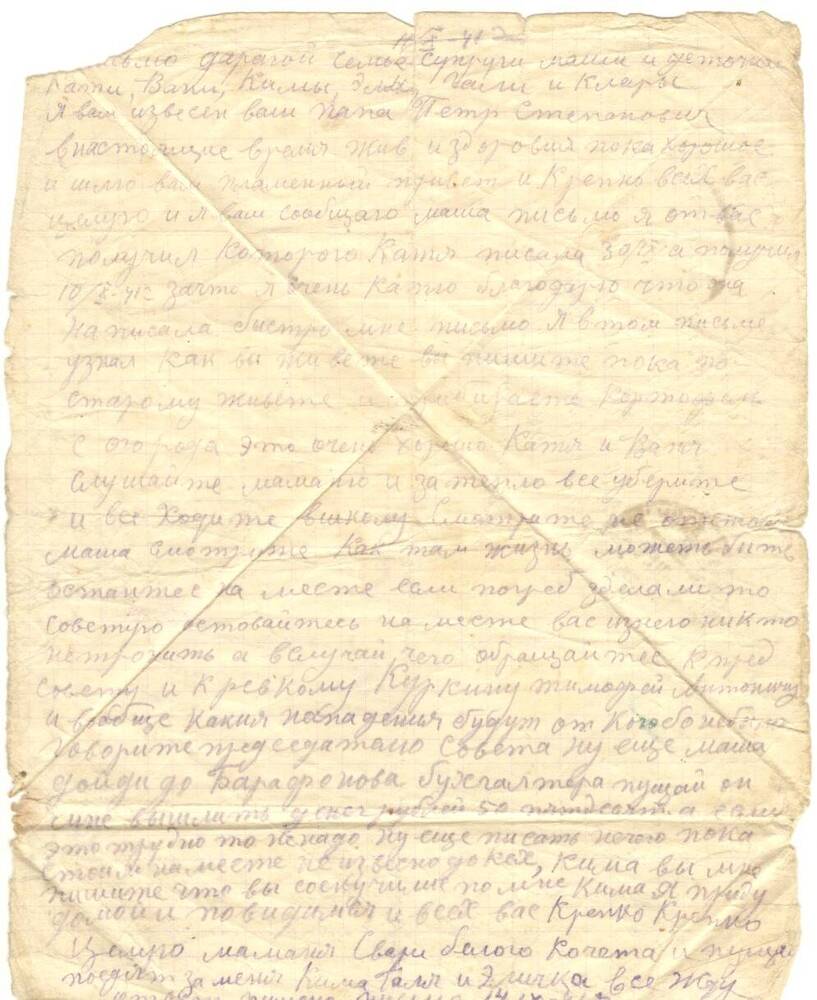 11/X-41 г
письмо дарагой семье Супруги маши и деточкам
Кати, Вани, Кимы, Эли, Гали и Клары
Я вам извесен ваш папа Петр Степанович
внастоящие время жив издоровий пока хорошое
и шлю вам пламенный привет и Крепко всех вас
целую и я вам сообщаю маша письмо я от вас
получил Которого Катя писала 30/IX а получил
10/X-41г зачто я очень Катю благодарю что та
написала быстро мне письмо Я втом письме
узнал как вы живете вы пишите пока по
старому живете и Картофель
с огорода это очень хорошо Катя и Ваня
слушайте маманю и затепло все уберите
и все Ходите вшколу Смотрите не отстой
маша смотрите Как там жизнь можеть быть
остантес на месте если погреб зделали то
советую оставайтесь на месте вас изнего никто
нетронить а вслучай чего обращайтес к пред
совету и Кревкому Куркину тимофей Антонович
и вообще какия нападения будут от Кого бо небыло
Говорите председателю Совета ну еще маша
дойди до Барафонова бухгалтера пущай он
мне вышлить денег рублей 50 пятдесят а если
это трудно то ненадо ну еще писать нечего пока
стоим наместе неизвесно докех, Кима вы мне
пишите что вы соскучили помне Кима Я приду
домой и повидимся и всех вас Крепко Крепко
Целую маманя Свари белого Кочета и пущай
поедят за меня Кима Галя и Эличка все жду
письмо